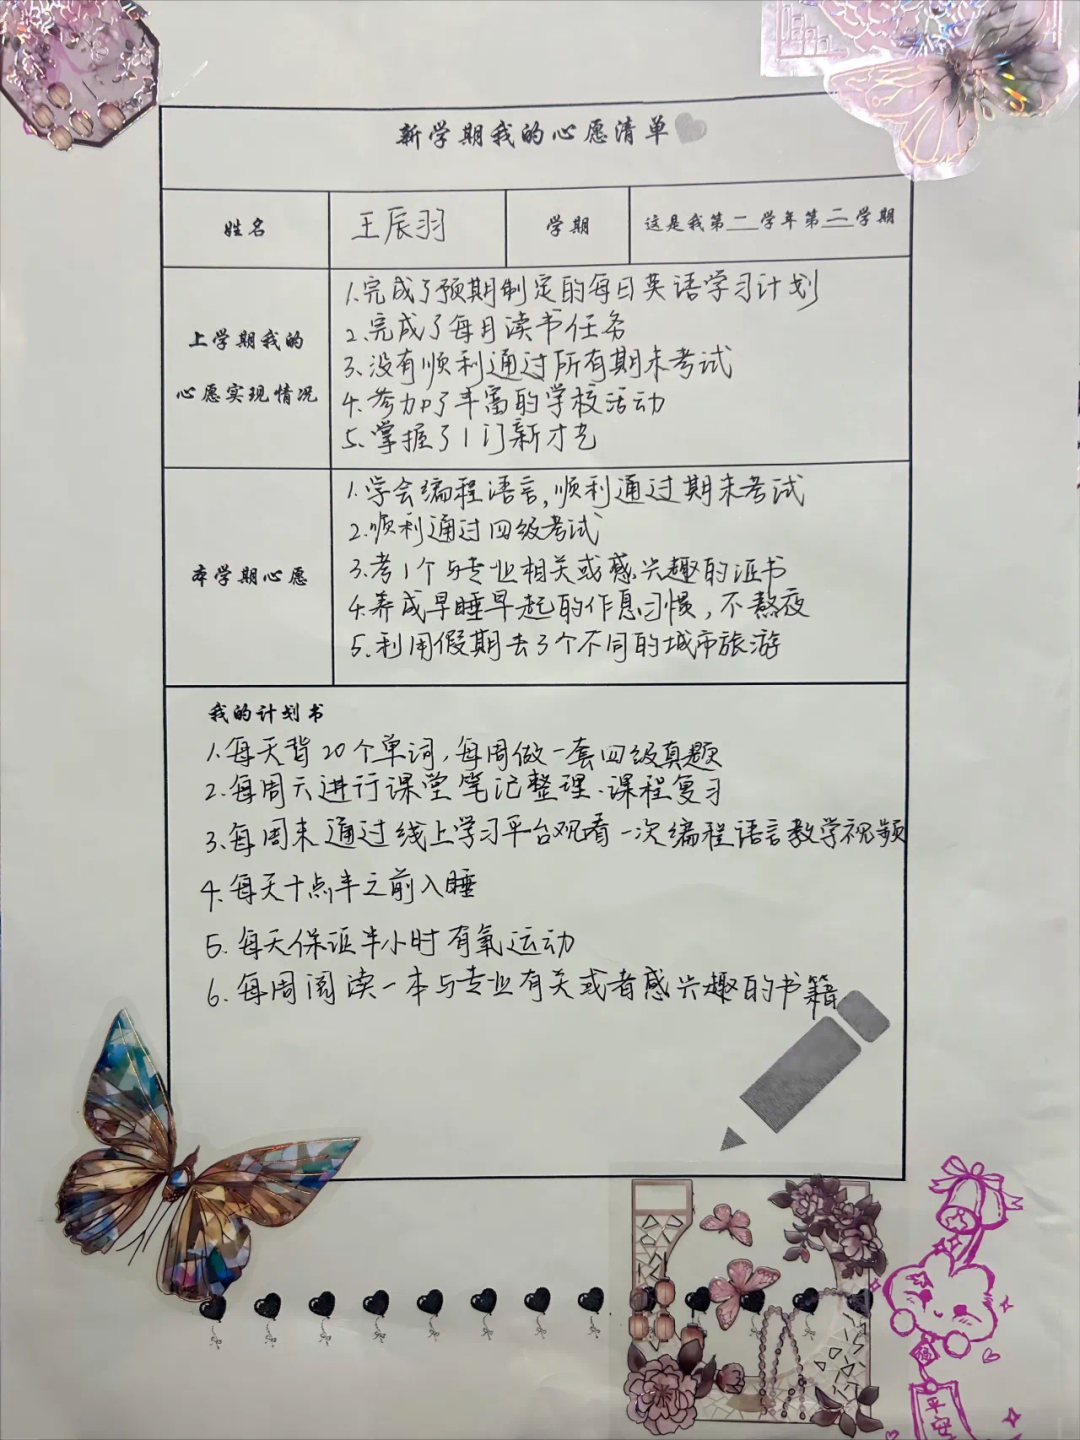 新学期我的心愿清单
姓名 王辰羽 学期 这是我第二学年第二学期
上学期我的
心愿实现情况
1.完成了预期制定的每日英语学习计划
2.完成了每月读书任务
3.没有顺利通过所有期末考试
4.参加了丰富的学校活动
5.掌握了1门新才艺
本学期心愿
1.学会编程语言,顺利通过期末考试
2.顺利通过四级考试
3.考1个与专业相关或感兴趣的证书
4.养成早睡早起的作息习惯,不熬夜
5.利用假期去3个不同的城市旅游
我的计划书
1.每天背20个单词,每周做一套四级真题
2.每周六进行课堂笔记整理、课程复习
3.每周末通过线上学习平台观看一次编程语言教学视频
4.每天十点半之前入睡
5.每天保证半小时有氧运动
6.每周阅读一本与专业有关或者感兴趣的书籍
福
平安